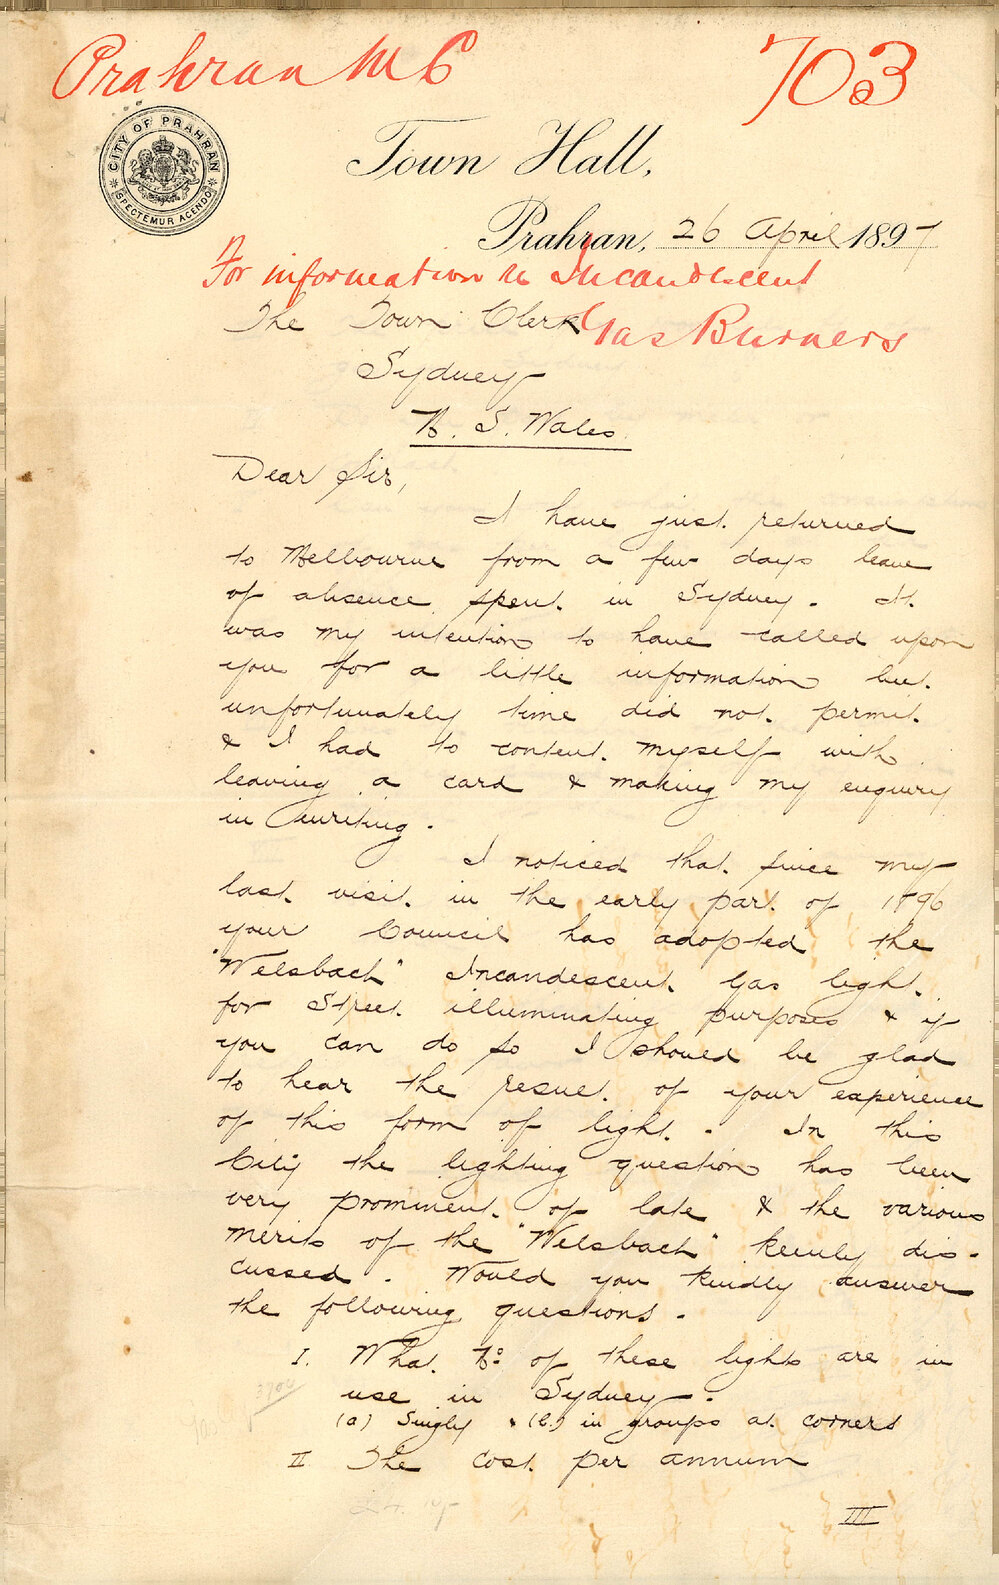 Prahran M C
703
CITY OF PRAHRAN
SPECTEMUR AGENDO
Town Hall,
Prahran, 26 April 1897
For information re Incandescent
Gas Burners
The Town Clerk
Sydney
N. S. Wales.
Dear Sir,
I have just returned
to Melbourne from a few days leave
of absence spent in Sydney. It
was my intention to have called upon
you for a little information but
unfortunately time did not permit
& I had to content myself with
leaving a card & making my enquiry
in writing.
I noticed that since my
last visit in the early part of 1896
your Council has adopted the
"Welsbach" Incandescent Gas light
for Street illuminating purposes & if
you can do so I should be glad
to hear the result of your experience
of this form of light. - In this
City the lighting question has been
very prominent of late & the various
merits of the "Welsbach" keenly dis-
cussed. Would you kindly answer
the following questions.
I. What No of these lights are in
use in Sydney.
(a) Singly & (b.) in groups at corners
II The cost per annum
III